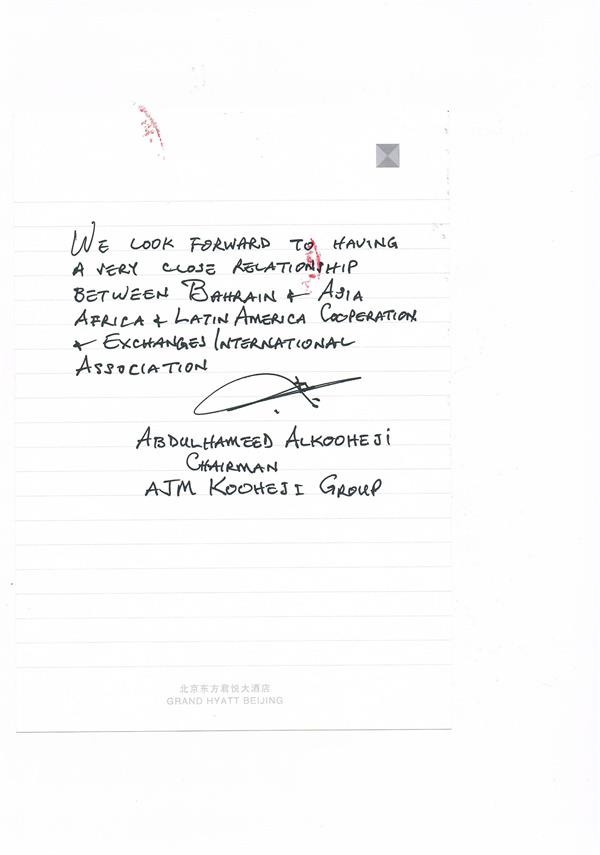 WE LOOK FORWARD TO HAVING
A VERY CLOSE RELATIONSHIP
BETWEEN BAHRAIN & ASIA
AFRICA & LATIN AMERICA COOPERATION
& EXCHANGES INTERNATIONAL
ASSOCIATION
ABDULHAMEED ALKOOHEJI
CHAIRMAN
AJM KOOHEJI GROUP
北京东方君悦大酒店
GRAND HYATT BEIJING